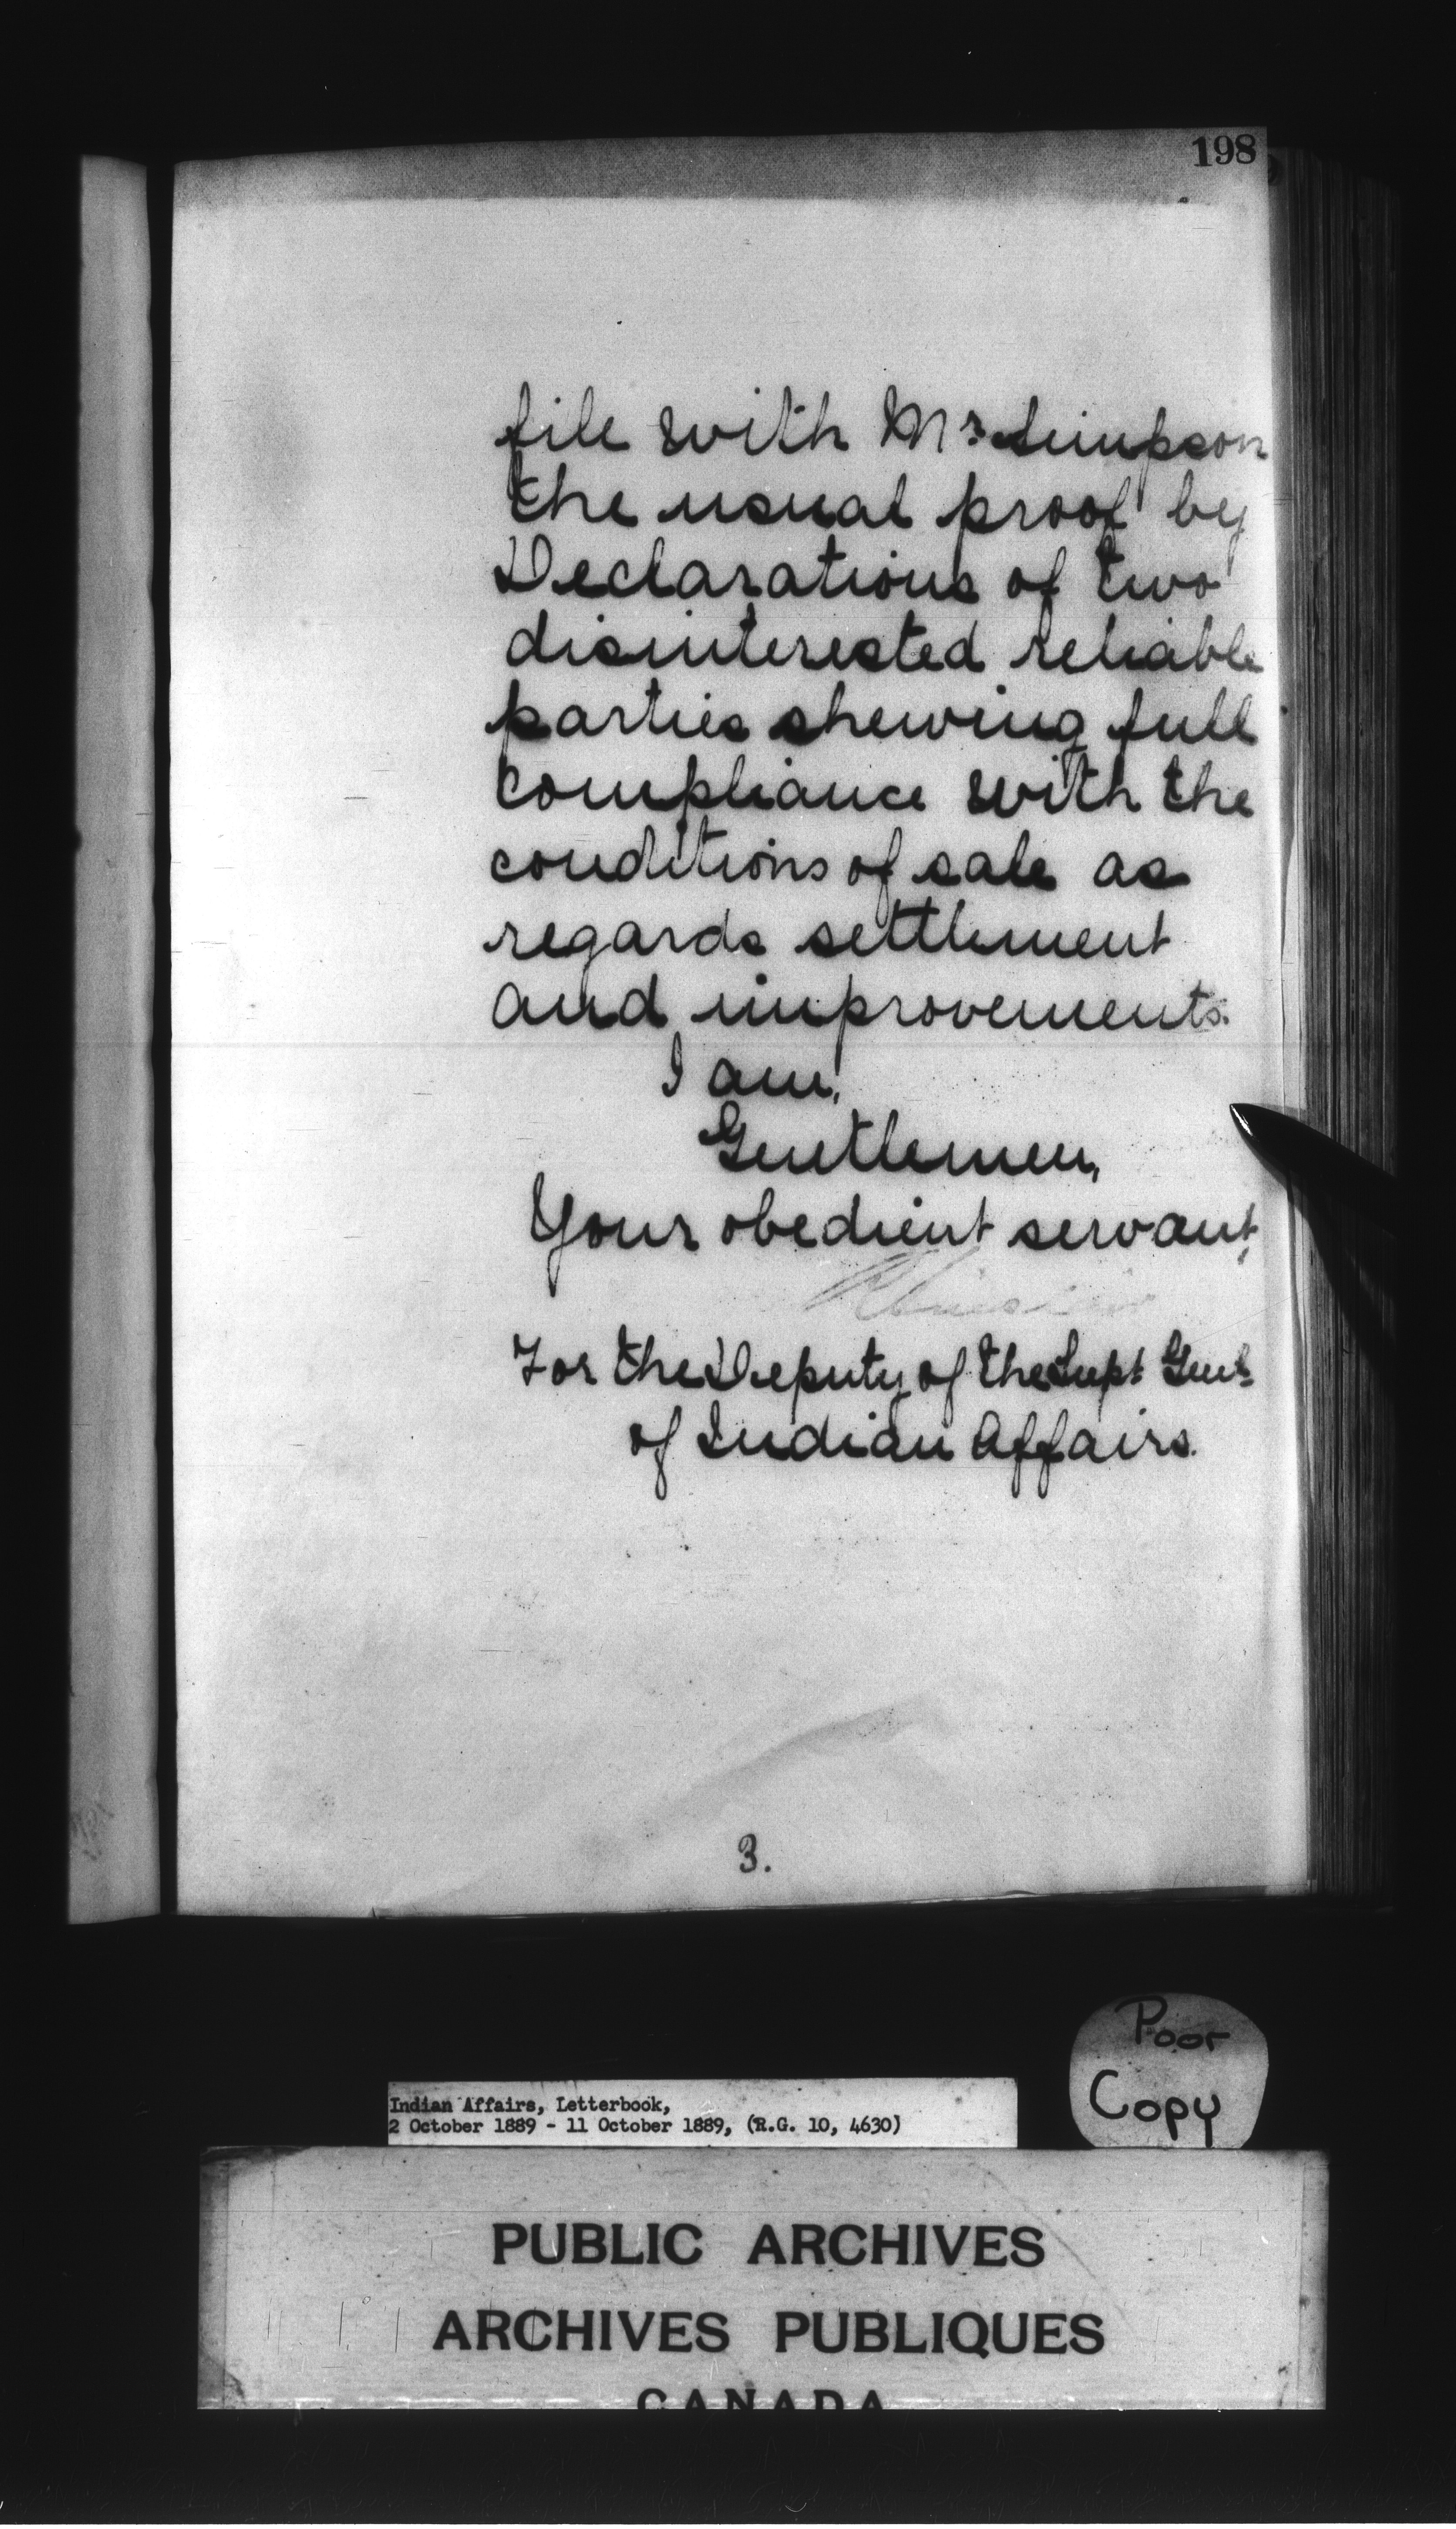 198
file with Mr. Simpson
the usual proof by
Declarations of two
disinterested reliable
parties shewing full
compliance with the
conditions of sale as
regards settlement
and improvements.
I am,
Gentlemen,
Your obedient servant,
For the Deputy of the Supt Genl.
of Indian Affairs.
3.
Poor
Copy
Indian Affairs, Letterbook,
2 October 1889 - 11 October 1889, (R.G. 10, 4630)
PUBLIC ARCHIVES
ARCHIVES PUBLIQUES
CANADA